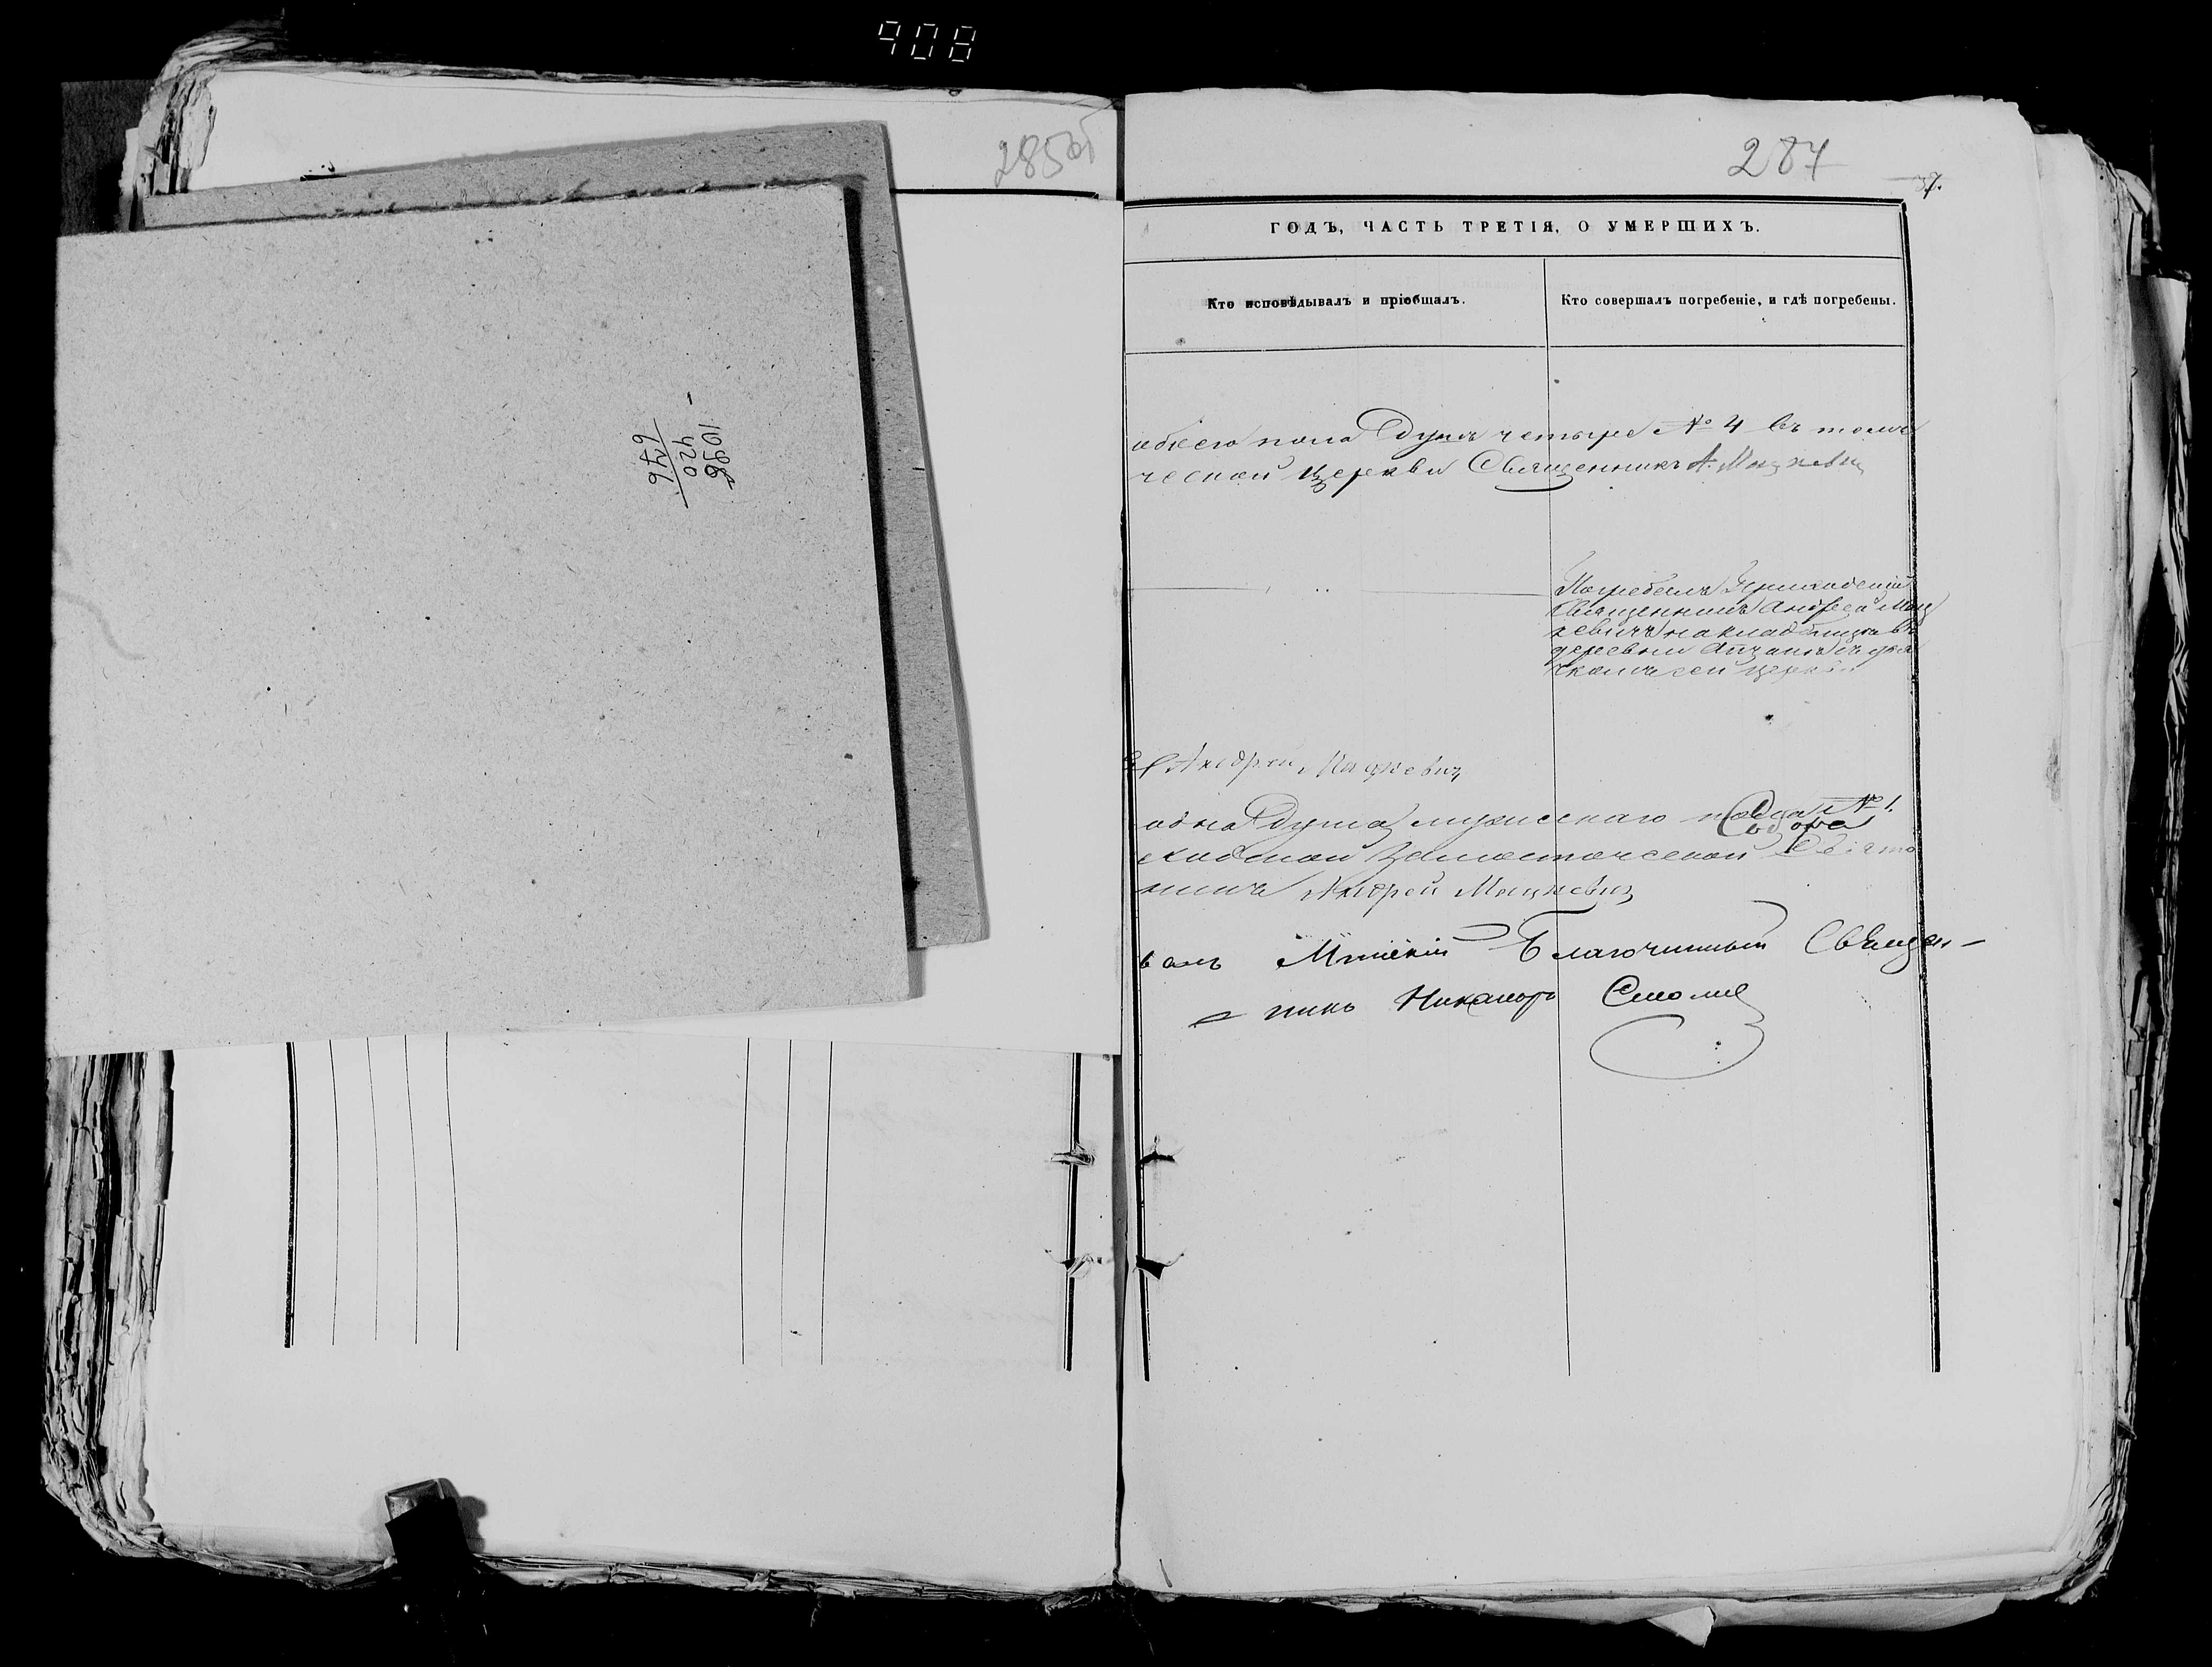 908
285об
287
37.
ГОДЪ, ЧАСТЬ ТРЕТІЯ, О УМЕРШИХЪ.
Кто исповѣдывалъ и пріобщалъ.
Кто совершалъ погребеніе, и гдѣ погребены.
1096
420
676
обоего пола Душъ четыре № 4 въ томъ
ческой Церкви Священникъ А. Мацкевич
Погребалъ
Священникъ Андрей Мац
кевичъ на кладбищѣ въ
деревни
сей церкви
Андрей Мацкевич
одна Душа мужескаго пола № 1.
Замосточеской
никъ Андрей Мацкевич
валъ Благочинный Священ-
никъ Никаноръ Смолич